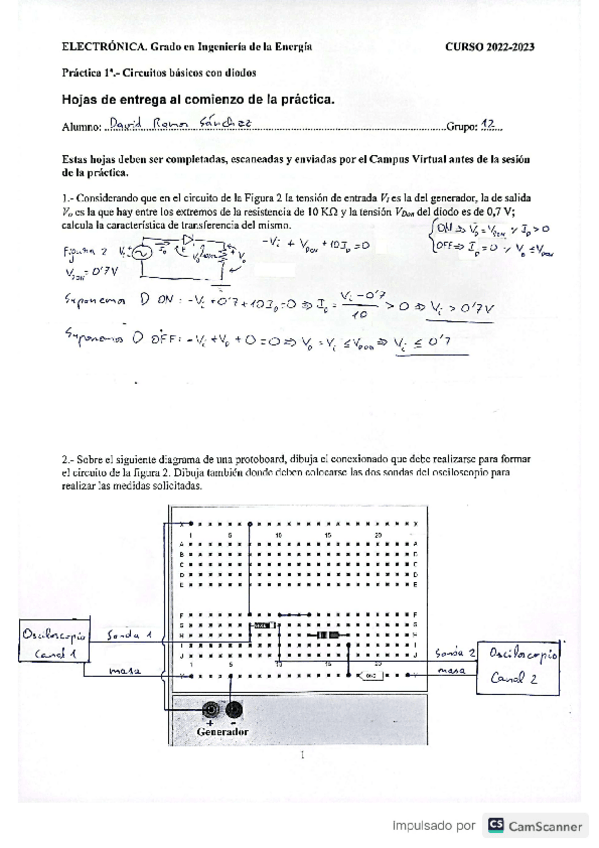 ELECTRÓNICA. Grado en Ingeniería de la Energía CURSO 2022-2023
Práctica 1ª.- Circuitos básicos con diodos
Hojas de entrega al comienzo de la práctica.
Alumno: David Ramos Sánchez Grupo: 12
Estas hojas deben ser completadas, escaneadas y enviadas por el Campus Virtual antes de la sesión
de la práctica.
1.- Considerando que en el circuito de la Figura 2 la tensión de entrada Vi es la del generador, la de salida
Vo es la que hay entre los extremos de la resistencia de 10 KΩ y la tensión VDon del diodo es de 0,7 V;
calcula la característica de transferencia del mismo.
Figura 2
-Vi + VDON + 10ID = 0
Suponemos D ON: -Vi + 0'7 + 10ID = 0 ⇒ ID = (Vi - 0'7)/10 > 0 ⇒ Vi > 0'7V
Suponemos D OFF: -Vi + Vo + 0 = 0 ⇒ Vo = Vi ≤ VDON ⇒ Vi ≤ 0'7
2.- Sobre el siguiente diagrama de una protoboard, dibuja el conexionado que debe realizarse para formar
el circuito de la figura 2. Dibuja también donde deben colocarse las dos sondas del osciloscopio para
realizar las medidas solicitadas.
X X
1 5 10 15 20
A
B
C
D
E E
F F
G G
H H
I I
J J
Y Y
Osciloscopio
Canal 1
Sonda 1
masa
Sonda 2
masa
Osciloscopio
Canal 2
GND
+ -
Generador
1
Impulsado por CS CamScanner